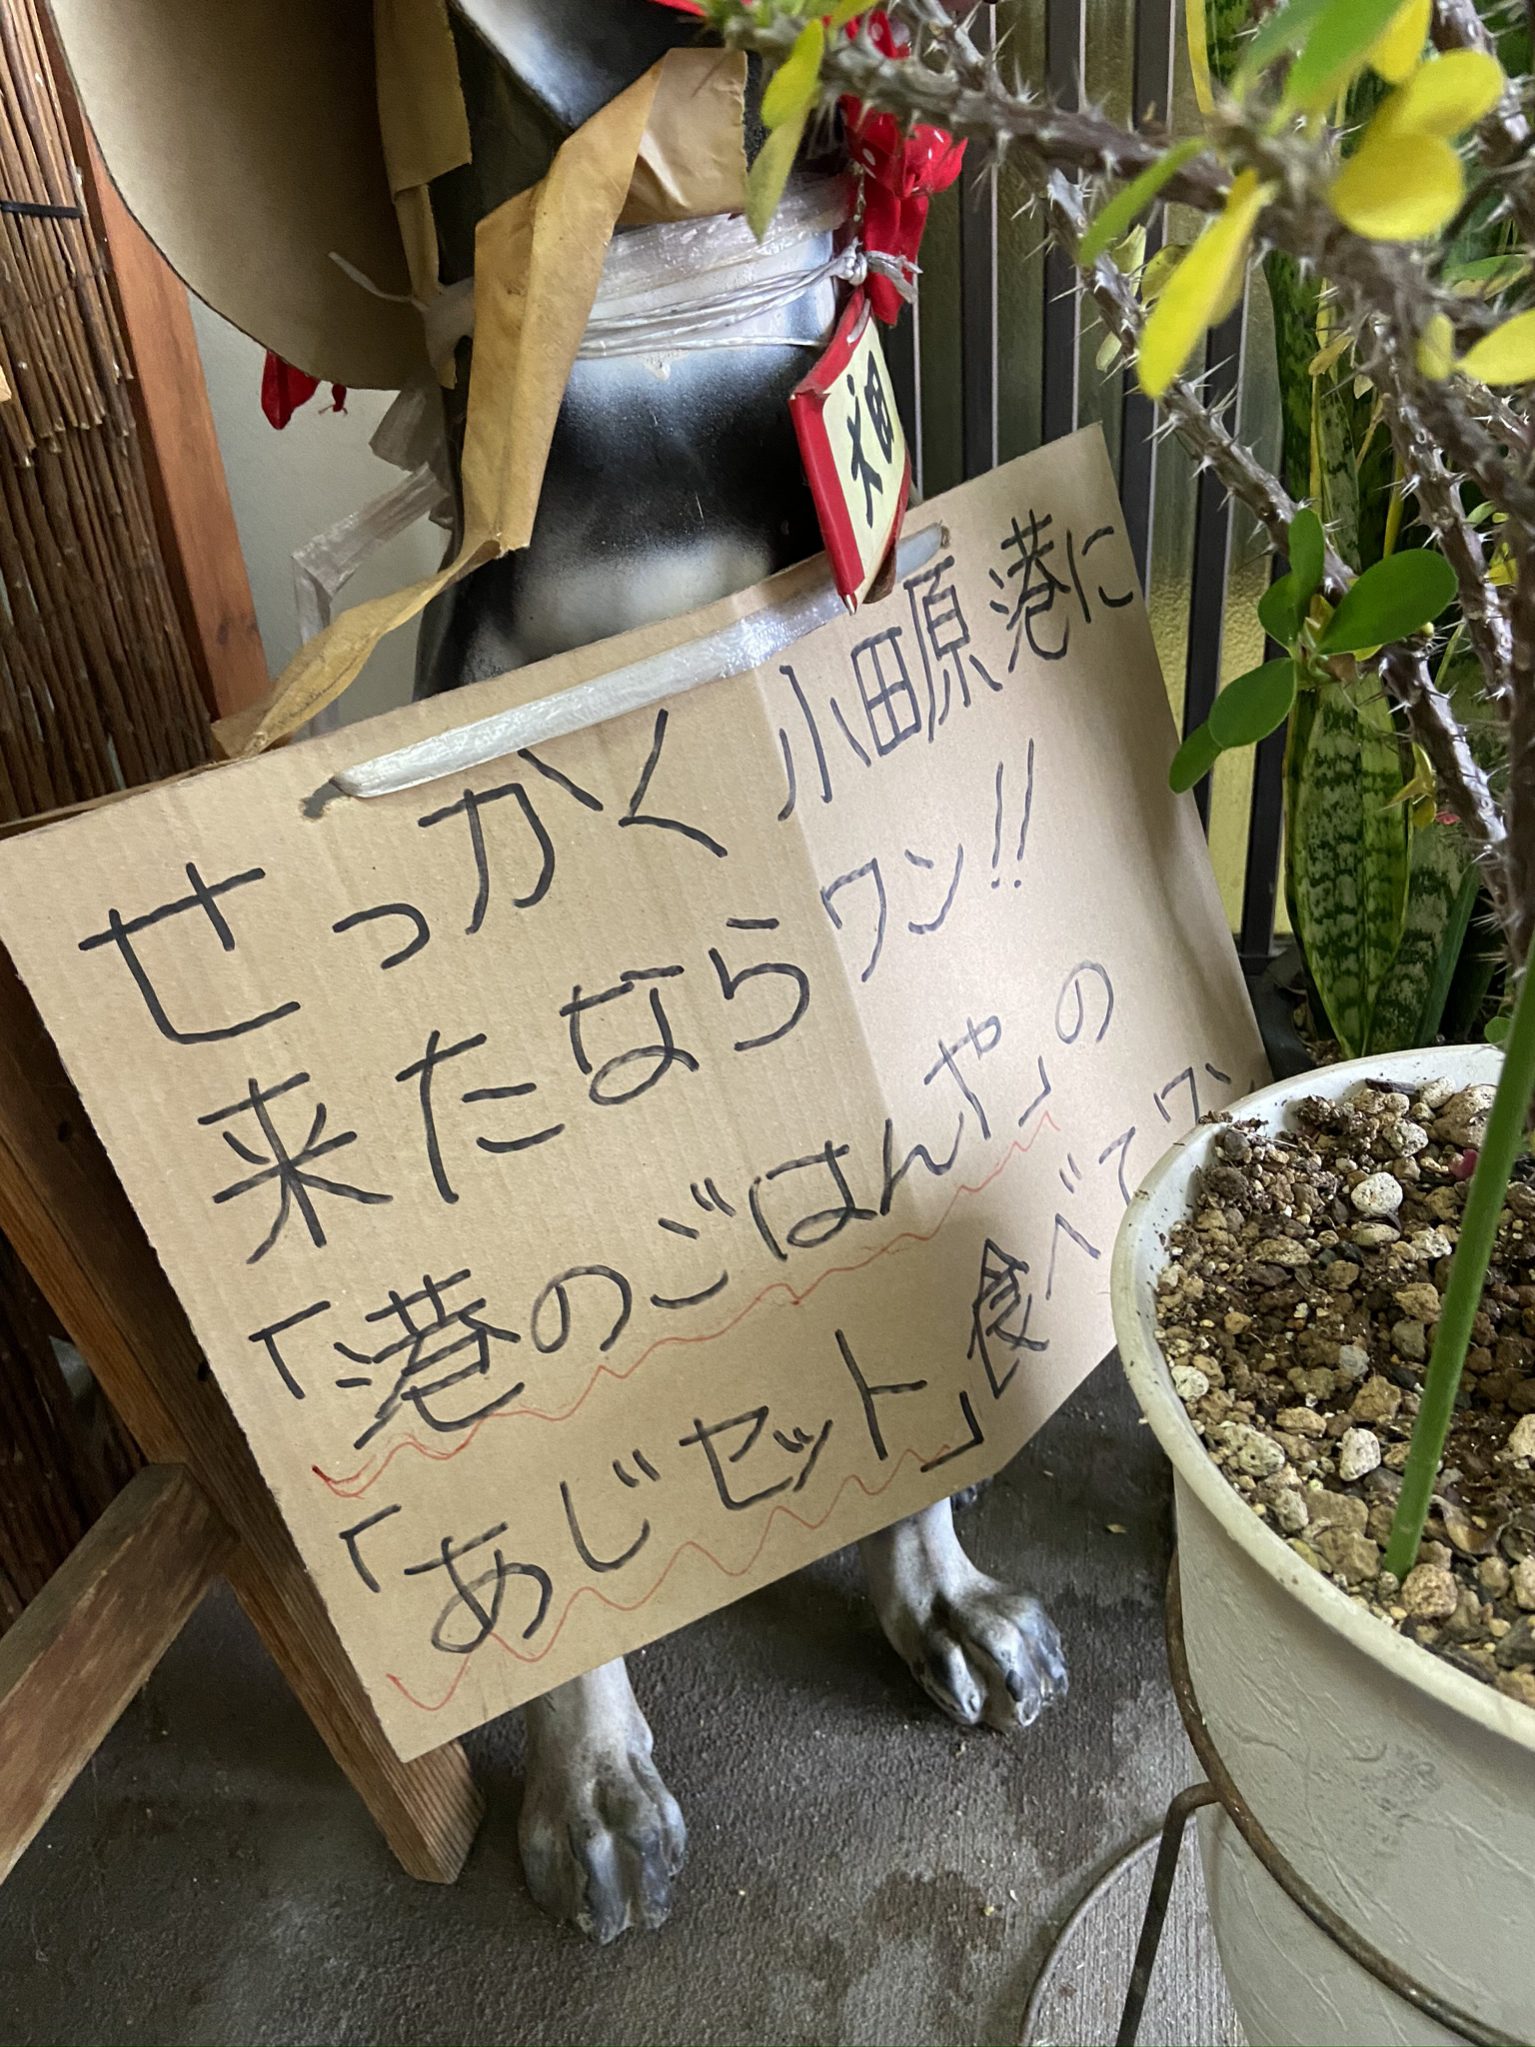 せっかく小田原港に
来たならワン!!
「港のごはんや」の
「あじセット」食べてワ